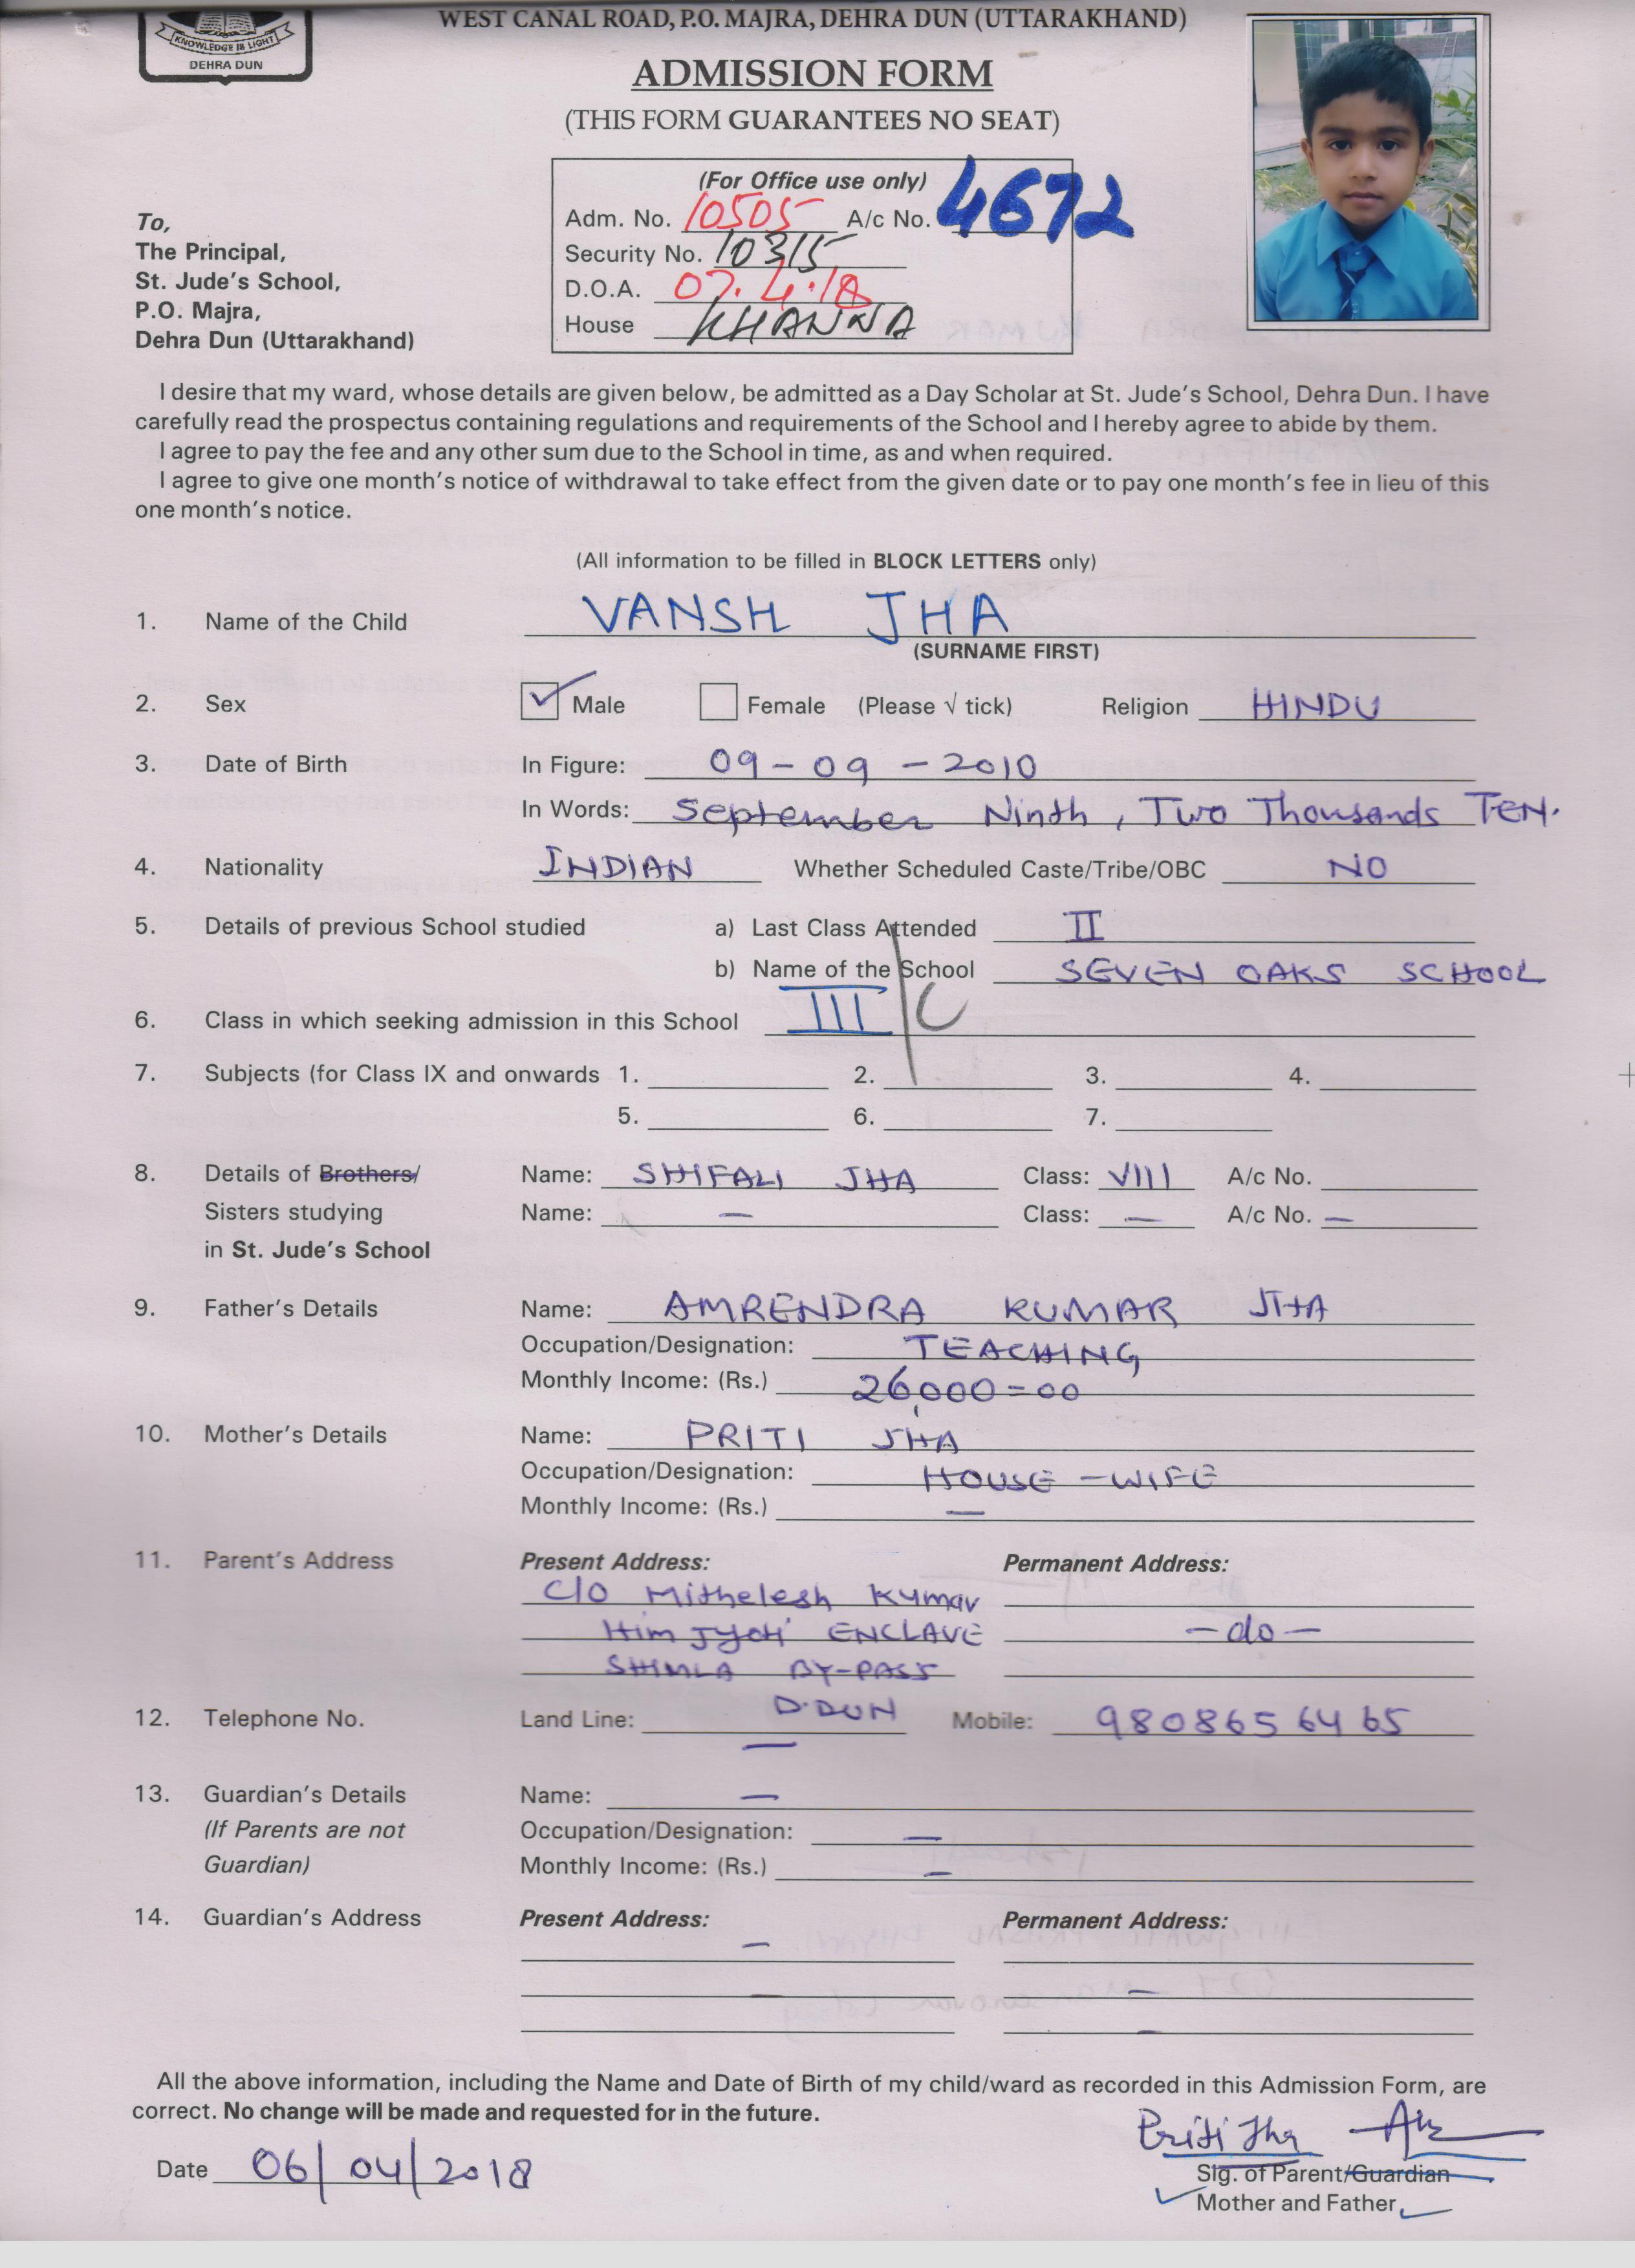 WEST CANAL ROAD, P.O. MAJRA, DEHRA DUN (UTTARAKHAND)
KNOWLEDGE IS LIGHT
DEHRA DUN
ADMISSION FORM
(THIS FORM GUARANTEES NO SEAT)
(For Office use only)
Adm. No. 10505 A/c No. 4672
Security No. 10315
D.O.A. 07.4.18
House KHANNA
To,
The Principal,
St. Jude's School,
P.O. Majra,
Dehra Dun (Uttarakhand)
I desire that my ward, whose details are given below, be admitted as a Day Scholar at St. Jude's School, Dehra Dun. I have
carefully read the prospectus containing regulations and requirements of the School and I hereby agree to abide by them.
I agree to pay the fee and any other sum due to the School in time, as and when required.
I agree to give one month's notice of withdrawal to take effect from the given date or to pay one month's fee in lieu of this
one month's notice.
(All information to be filled in BLOCK LETTERS only)
1. Name of the Child VANSH JHA
(SURNAME FIRST)
2. Sex Male Female (Please √ tick) Religion HINDU
3. Date of Birth In Figure: 09-09-2010
In Words: September Ninth, Two Thousands TEN.
4. Nationality INDIAN Whether Scheduled Caste/Tribe/OBC NO
5. Details of previous School studied a) Last Class Attended II
b) Name of the School SEVEN OAKS SCHOOL
6. Class in which seeking admission in this School III/C
7. Subjects (for Class IX and onwards 1. 2. 3. 4.
5. 6. 7.
8. Details of Brothers/ Name: SHIFALI JHA Class: VIII A/c No.
Sisters studying Name: — Class: — A/c No. —
in St. Jude's School
9. Father's Details Name: AMRENDRA KUMAR JHA
Occupation/Designation: TEACHING
Monthly Income: (Rs.) 26,000=00
10. Mother's Details Name: PRITI JHA
Occupation/Designation: HOUSE-WIFE
Monthly Income: (Rs.) —
11. Parent's Address Present Address: Permanent Address:
C/O Mithelesh Kumar
Him Jyoti ENCLAVE -do-
SHIMLA BY-PASS
D.DUN
12. Telephone No. Land Line: — Mobile: 9808656465
13. Guardian's Details Name: —
(If Parents are not Occupation/Designation: —
Guardian) Monthly Income: (Rs.) —
14. Guardian's Address Present Address: Permanent Address:
—
— —
—
All the above information, including the Name and Date of Birth of my child/ward as recorded in this Admission Form, are
correct. No change will be made and requested for in the future.
Priti Jha
Date 06/04/2018 Sig. of Parent/Guardian
Mother and Father